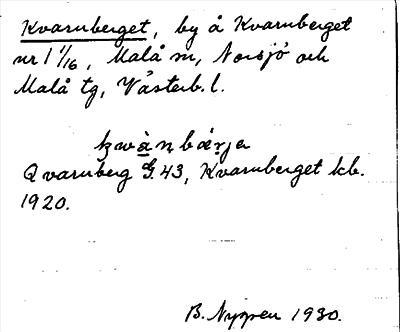 Kvarnberget, by å Kvarnberget
nr 1 1/16, Malå sn, Norsjö och
Malå tg, Västerb. l.
kwànbǽrje
Qvarnberg G. 43, Kvarnberget kb.
1920.
B. Nygren 1930.